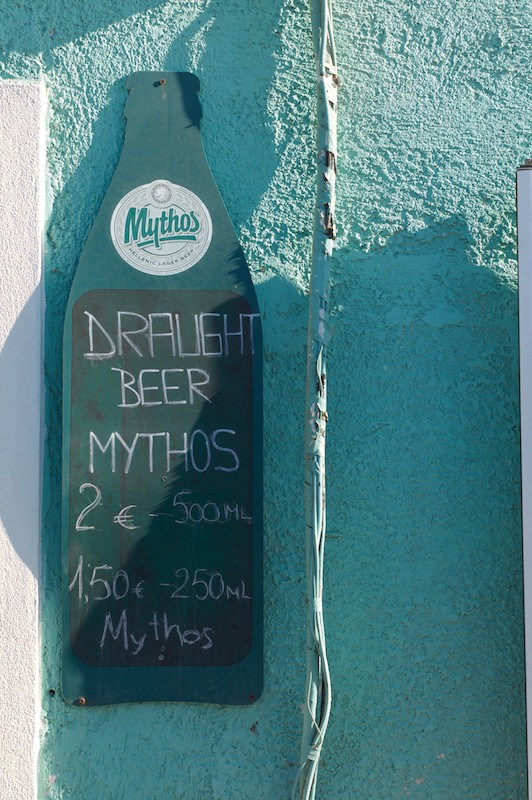 Mythos
HELLENIC LAGER BEER
DRAUGHT
BEER
MYTHOS
2 € -500ML
1,50€ -250ML
Mythos